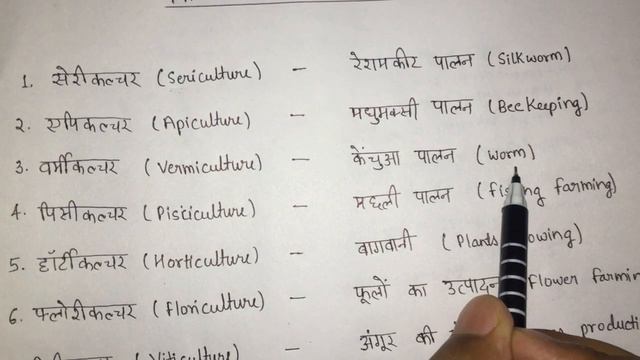 1. सेरीकल्चर (Sericulture) – रेशमकीट पालन (Silkworm)
2. एपिकल्चर (Apiculture) – मधुमक्खी पालन (Bee Keeping)
3. वर्मीकल्चर (Vermiculture) – केंचुआ पालन (worm)
4. पिसीकल्चर (Pisciculture) – मछली पालन (farming)
5. हॉर्टीकल्चर (Horticulture) – बागवानी (Plants
6. फ्लोरीकल्चर (Floriculture) – फूलों का उत्पादन Flower
(Viticulture) अंगूर की